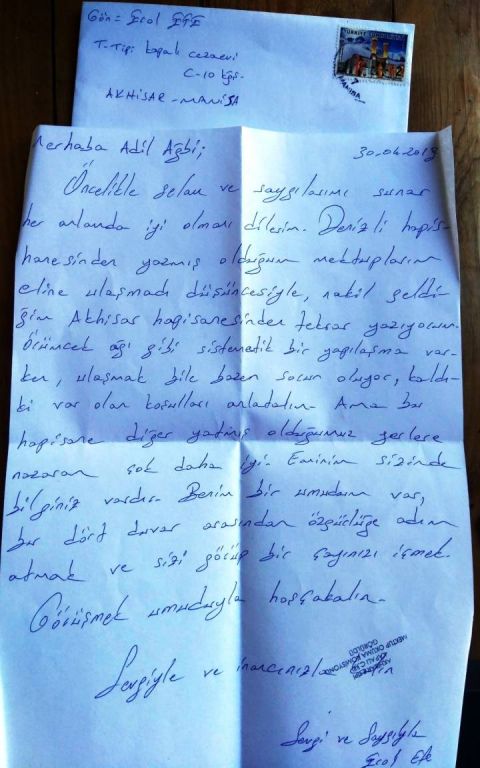 Gön: Erol EFE
T-Tipi kapalı cezaevi
C-10 kğş.
AKHİSAR-MANİSA
TÜRKİYE
MANİSA
Merhaba Adil Ağbi;
30.04.2018
Öncelikle selam ve saygılarımı sunar
her anlamda iyi olmanı dilerim. Denizli hapis-
hanesinden yazmış olduğum mektupların
eline ulaşmadı düşüncesiyle, nakil geldi-
ğim Akhisar hapisanesinden tekrar yazıyorum.
Örümcek ağı gibi sistematik bir yapılaşma var-
ken, ulaşmak bile bazen sorun oluyor, kaldı-
ki var olan koşulları anlatalım. Ama bu
hapisane diğer yatmış olduğumuz yerlere
nazaran çok daha iyi. Eminim sizinde
bilginiz vardır. Benim bir umudum var,
bu dört duvar arasından özgürlüğe adım
atmak ve sizi görüp bir çayınızı içmek.
Görüşmek umuduyla hoşçakalın.
Sevgiyle ve inancınızla kalın
MEKTUP OKUMA KOMİSYONU
GÖRÜLDÜ
Sevgi ve Saygıyla
Erol Efe